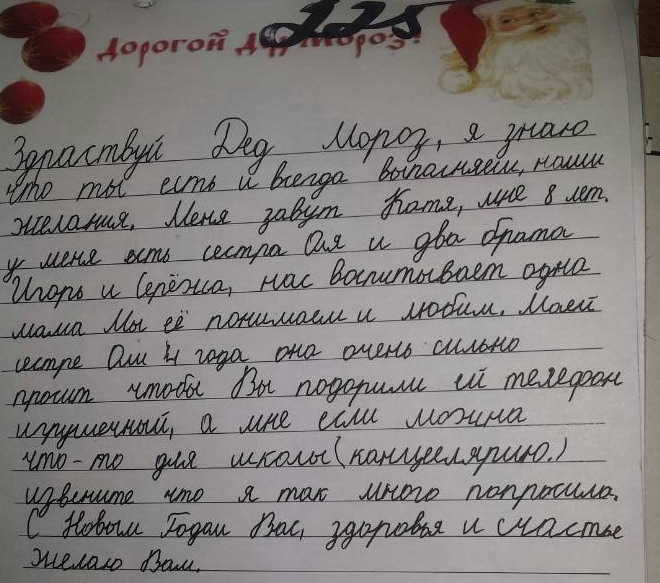 225
Дорогой Дед Мороз!
Здраствуй Дед Мороз, я знаю
что ты есть и всегда выпасняеш, наши
желания. Меня завут Катя, мне 8 лет.
у меня есть сестра Оля и два брата
Игорь и Серёжа, нас воспитывает одна
мама Мы её понимаем и любим. Маей
сестре Оли 4 года она очень сильно
просит чтобы Вы подорили ей телефон
игрушечный, а мне если можна
что-то для школы (канцелярию.)
извените что я так много попросила.
С Новым Годам Вас, здоровья и счастье
желаю Вам.